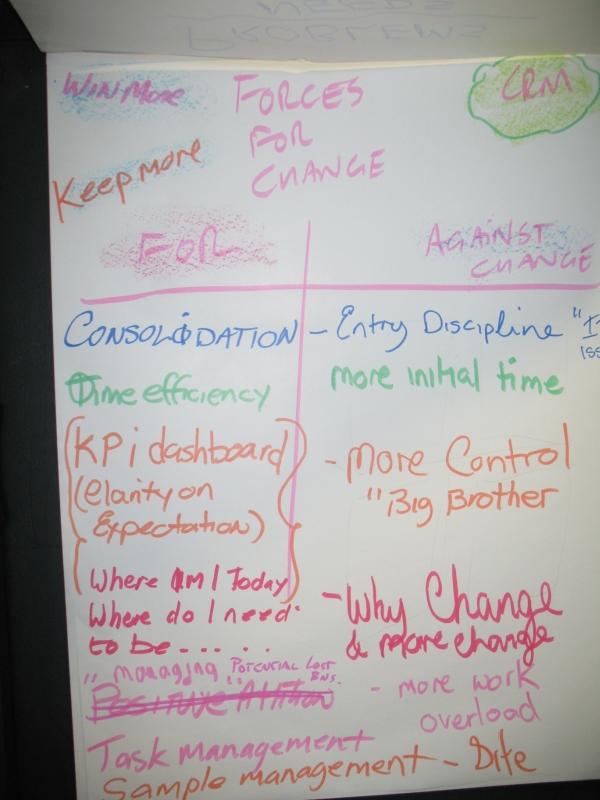 NEEDS
PROBLEMS
WIN MORE
FORCES
FOR
CHANGE
CRM
Keep more
FOR
AGAINST
CHANGE
CONSOLIDATION
- Entry Discipline
Time efficiency
more initial time
KPi dashboard
(Clarity on
Expectation)
- More Control
"Big Brother
Where Am I Today
Where do I need
to be.....
- Why Change
& more change
"managing" POTENTIAL LOST
BNS.
- more work
overload
Task management
Sample management -